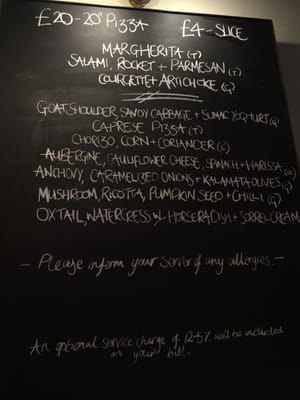 £20-20" PIZZA £4-SLICE
MARGHERITA (T)
SALAMI, ROCKET + PARMESAN (T)
COURGETTE + ARTICHOKE (G)
GOAT SHOULDER, SAVOY CABBAGE + SUMAC YOGHURT (G)
CAPRESE PIZZA (T)
CHORIZO, CORN + CORIANDER (G)
AUBERGINE, CAULIFLOWER CHEESE, SPINACH + HARISSA (G)
ANCHOVY, CARAMELIZED ONIONS + KALAMATA OLIVES (G)
MUSHROOM, RICOTTA, PUMPKIN SEED + CHILLI (G)
OXTAIL, WATERCRESS W. HORSERADISH + SORREL CREAM
- Please inform your server of any allergies. -
An optional service charge of 12.5% will be included
on your bill.